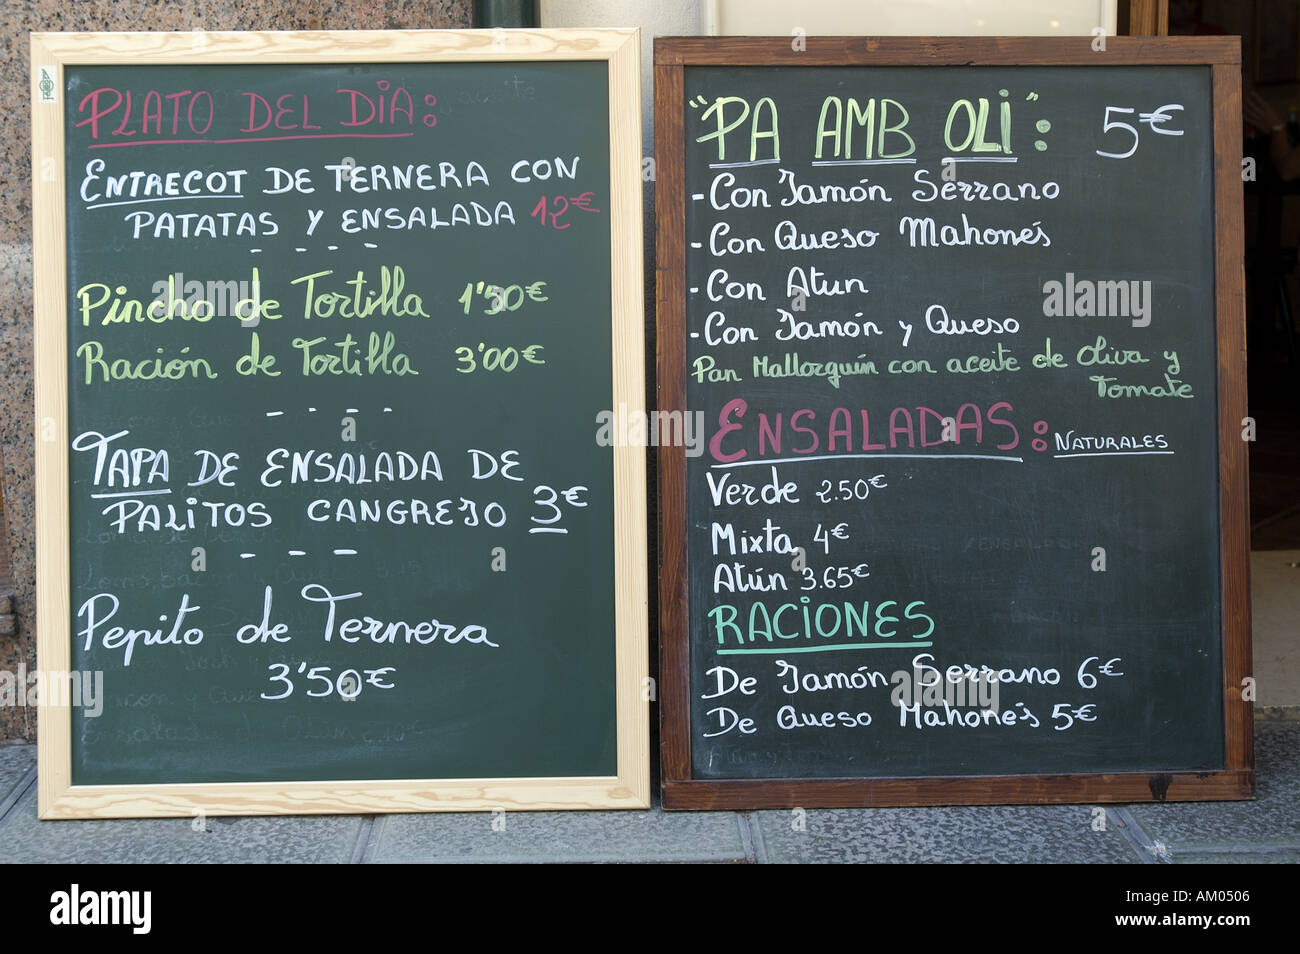 PLATO DEL DIA:
ENTRECOT DE TERNERA CON
PATATAS Y ENSALADA 12€
- - - -
Pincho de Tortilla 1'50€
Ración de Tortilla 3'00€
- - - -
TAPA DE ENSALADA DE
PALITOS CANGREJO 3€
- - -
Pepito de Ternera
3'50€
"PA AMB OLI": 5€
- Con Jamón Serrano
- Con Queso Mahonés
- Con Atun
- Con Jamón y Queso
Pan Mallorquín con aceite de oliva y
Tomate
ENSALADAS: NATURALES
Verde 2.50€
Mixta 4€
Atún 3.65€
RACIONES
De Jamón Serrano 6€
De Queso Mahonés 5€
alamy
Image ID: AM0506
www.alamy.com